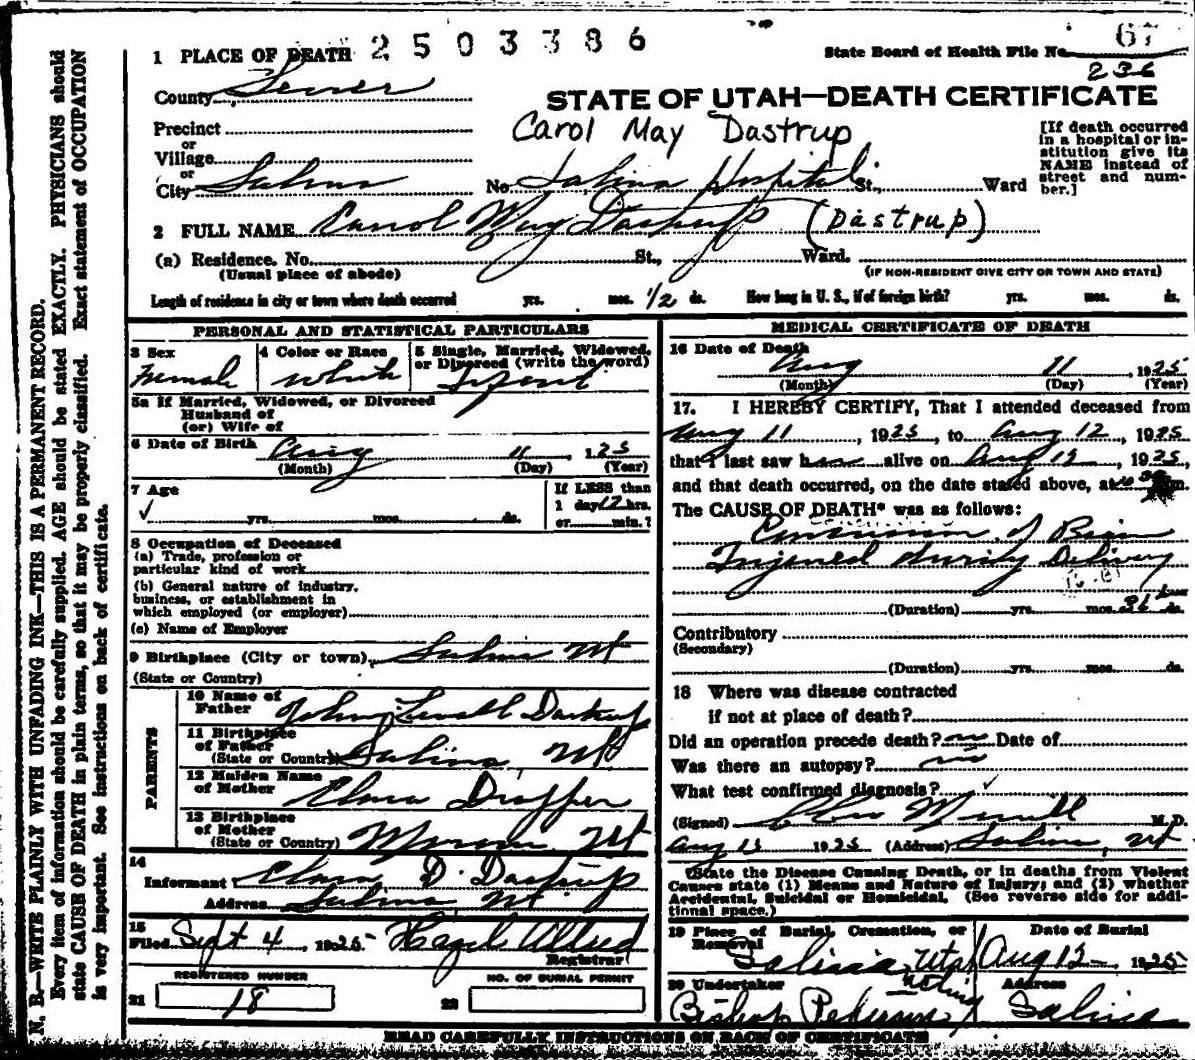 2503386
State Board of Health File No. 67
236
1 PLACE OF DEATH
County Sevier
STATE OF UTAH—DEATH CERTIFICATE
Precinct
or
Village
or
City Salina
Carol May Dastrup
No. Salina Hospital St., Ward
[If death occurred
in a hospital or in-
stitution give its
NAME instead of
street and num-
ber.]
2 FULL NAME Carrol May Dastrup (Dastrup)
(a) Residence. No. St., Ward.
(Usual place of abode)
(IF NON-RESIDENT GIVE CITY OR TOWN AND STATE)
Length of residence in city or town where death occurred yrs. mos. 1/2 ds. How long in U. S., if of foreign birth? yrs. mos. ds.
PERSONAL AND STATISTICAL PARTICULARS
3 Sex
Female
4 Color or Race
White
5 Single, Married, Widowed,
or Divorced (write the word)
Infant
5a If Married, Widowed, or Divorced
Husband of
(or) Wife of
6 Date of Birth Aug 11, 1925
(Month) (Day) (Year)
7 Age
yrs. mos. ds.
If LESS than
1 day 12 hrs.
or min.?
8 Occupation of Deceased
(a) Trade, profession or
particular kind of work
(b) General nature of industry,
business, or establishment in
which employed (or employer)
(c) Name of Employer
9 Birthplace (City or town), Salina Ut
(State or Country)
PARENTS
10 Name of
Father John Lavall Dastrup
11 Birthplace
of Father
(State or Country) Salina, Ut
12 Maiden Name
of Mother Elma Draffer
13 Birthplace
of Mother
(State or Country) Ut
14
Informant Elma D. Dastrup
Address Salina, Ut.
15
Filed Sept 4, 1925 Hazel Allred
Registrar
REGISTERED NUMBER
21 18
NO. OF BURIAL PERMIT
22
MEDICAL CERTIFICATE OF DEATH
16 Date of Death
Aug 11, 1925
(Month) (Day) (Year)
17. I HEREBY CERTIFY, That I attended deceased from
Aug 11, 1925, to Aug 12, 1925
that I last saw her alive on Aug 12, 1925,
and that death occurred, on the date stated above, at m.
The CAUSE OF DEATH* was as follows:
of Brain
Injured during Delivery
(Duration) yrs. mos. ds.
Contributory
(Secondary)
(Duration) yrs. mos. ds.
18 Where was disease contracted
if not at place of death?
Did an operation precede death? no Date of
Was there an autopsy? no
What test confirmed diagnosis?
(Signed) M.D.
Aug 13 1925 (Address) Salina, Ut
*State the Disease Causing Death, or in deaths from Violent
Causes state (1) Means and Nature of Injury; and (2) whether
Accidental, Suicidal or Homicidal. (See reverse side for addi-
tional space.)
19 Place of Burial, Cremation, or
Removal
Salina Utah
Date of Burial
Aug 12 1925
20 Undertaker
Bishop Pedersen acting
Address
Salina
READ CAREFULLY INSTRUCTIONS ON BACK OF CERTIFICATE
N. B.—WRITE PLAINLY WITH UNFADING INK—THIS IS A PERMANENT RECORD.
Every item of information should be carefully supplied. AGE should be stated EXACTLY. PHYSICIANS should
state CAUSE OF DEATH in plain terms, so that it may be properly classified. Exact statement of OCCUPATION
is very important. See instructions on back of certificate.